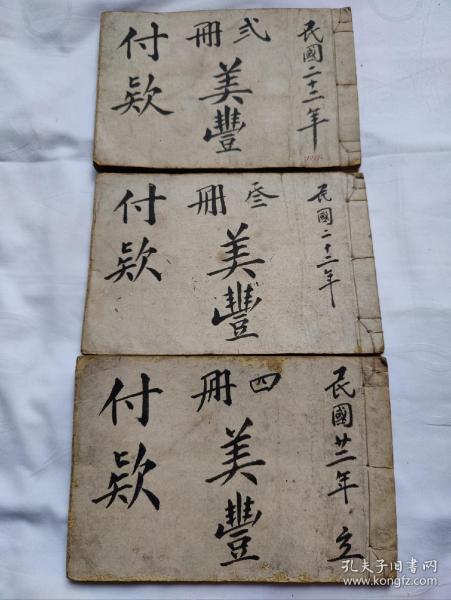 民國二十二年
弍冊
美豐
付欵
民國二十二年
叁冊
美豐
付欵
民國廿二年 立
四冊
美豐
付欵
孔夫子旧书网
www.kongfz.com